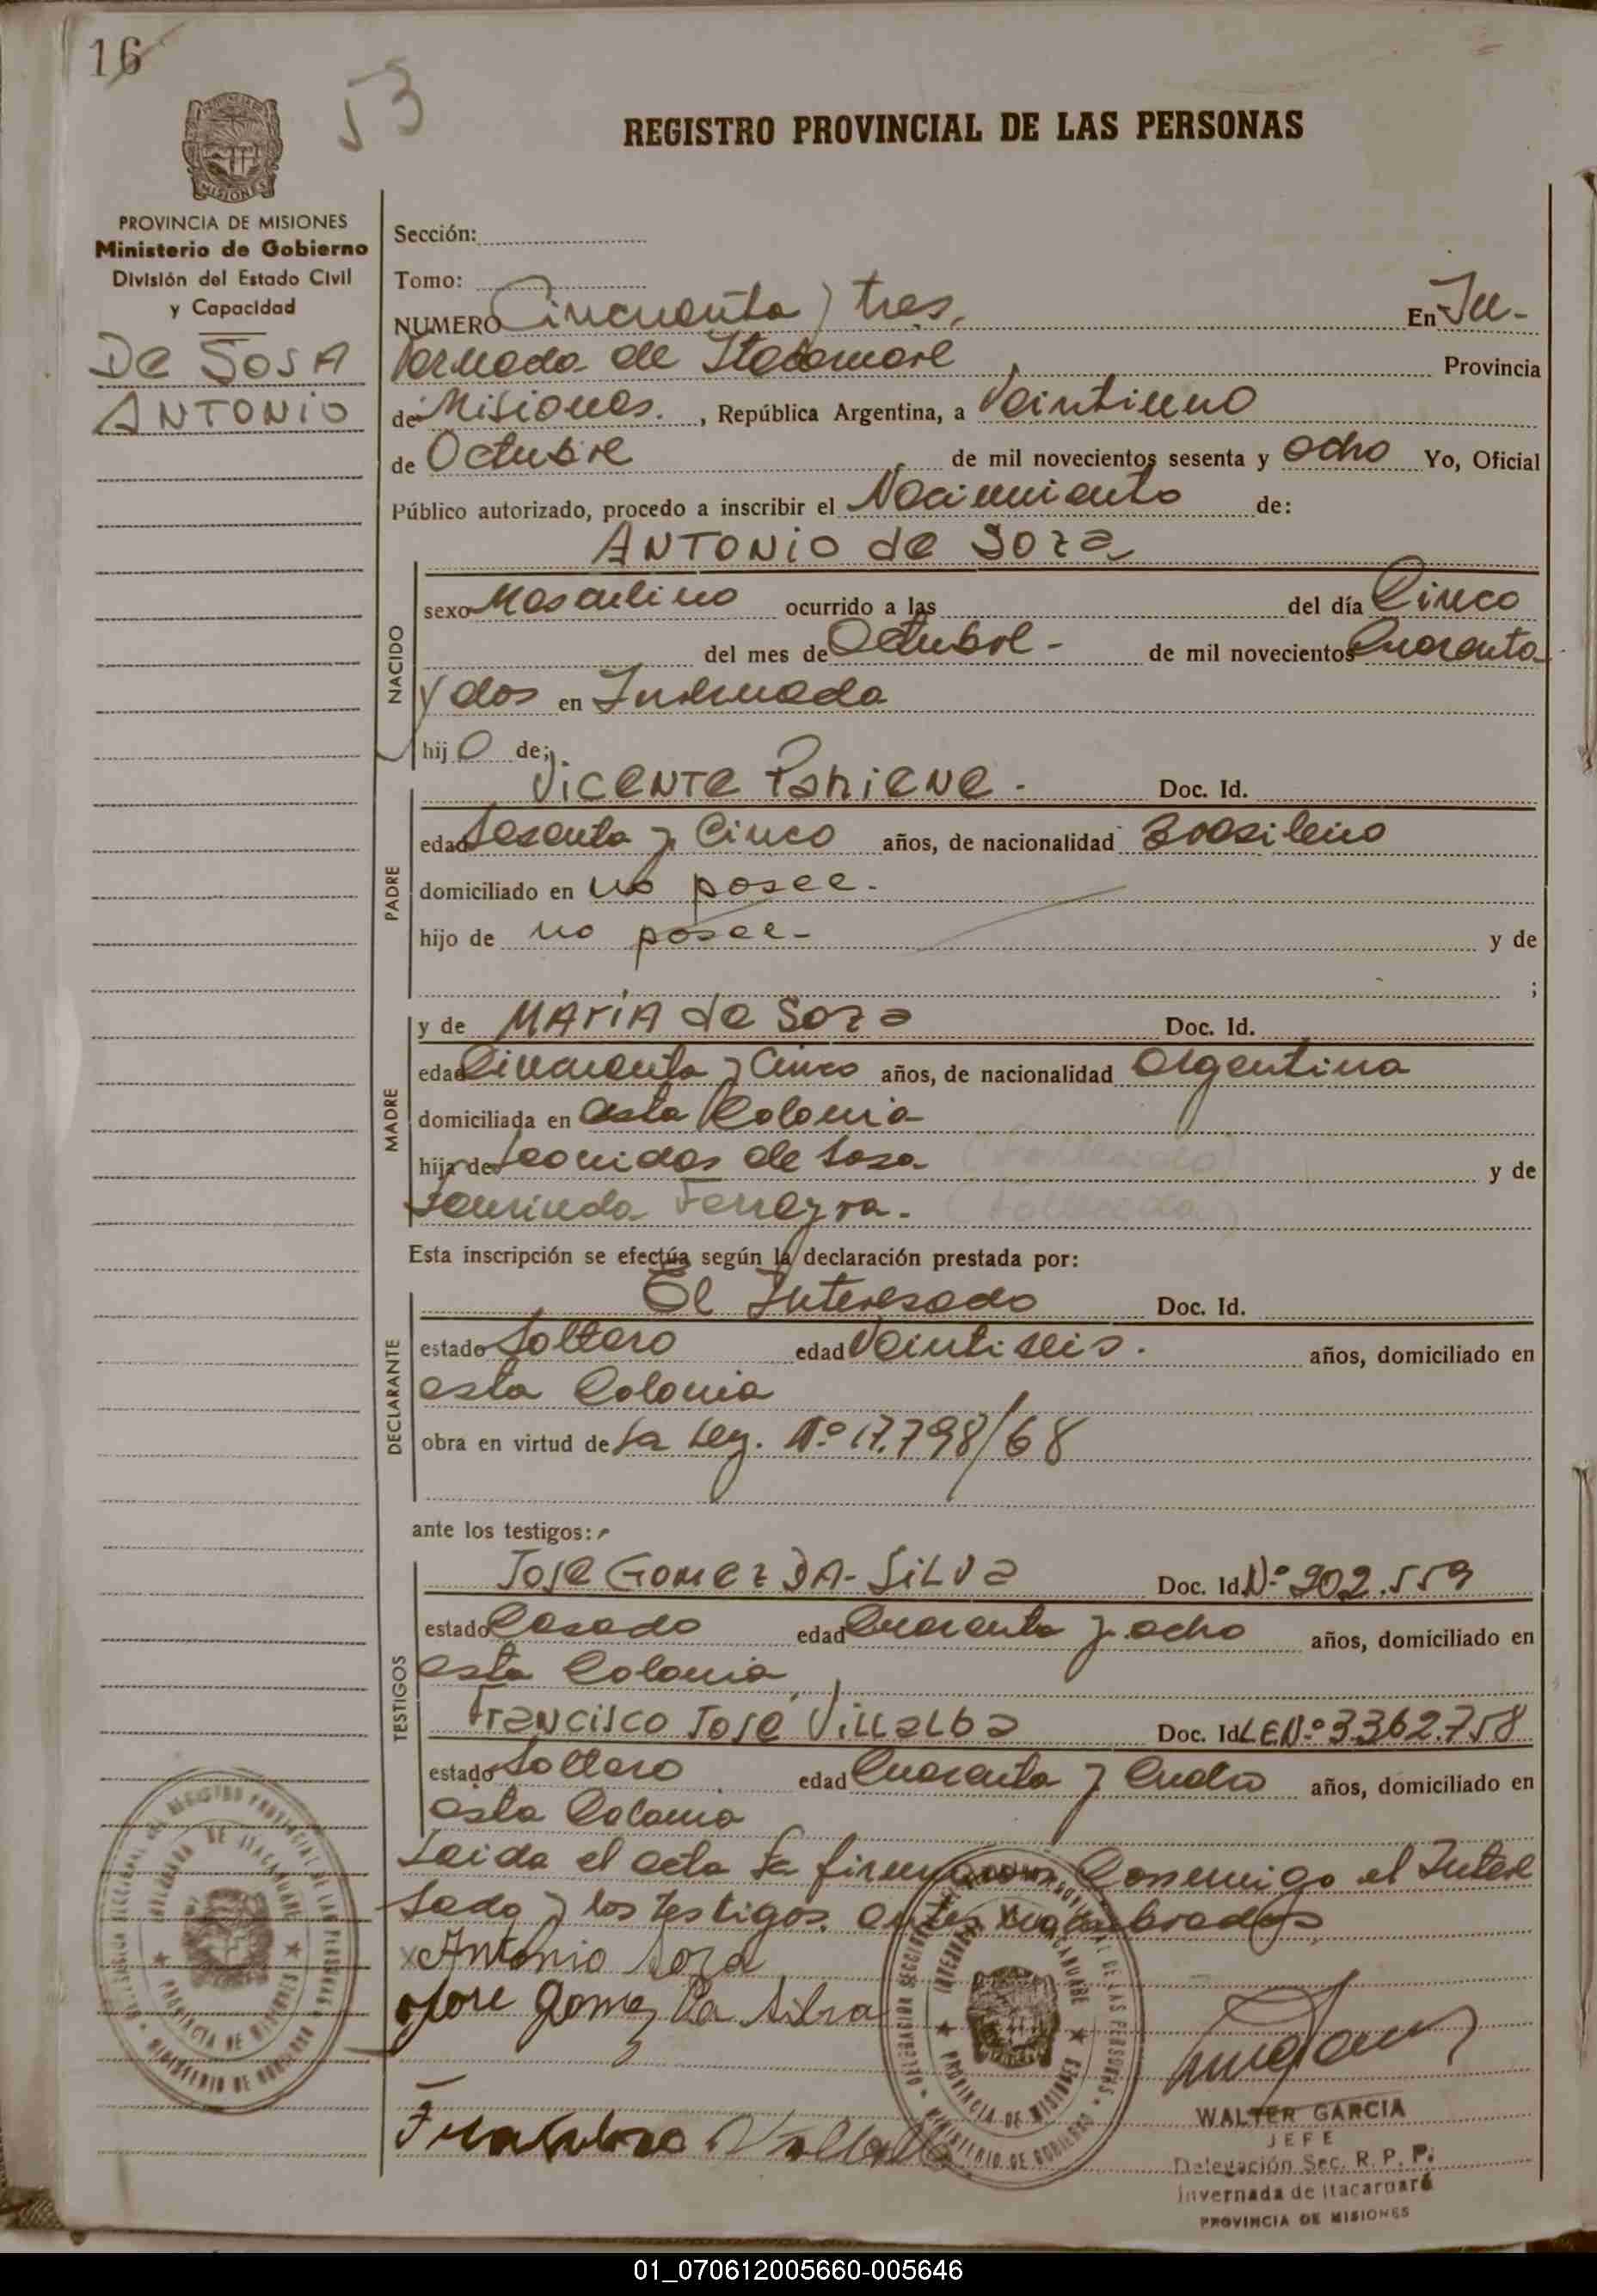 16
53
REGISTRO PROVINCIAL DE LAS PERSONAS
MISIONES
PROVINCIA DE MISIONES
Ministerio de Gobierno
División del Estado Civil
y Capacidad
De SOSA
ANTONIO
Sección:
Tomo:
NUMERO Cincuenta y tres, En In-
vernada de Itacaruaré Provincia
de Misiones. , República Argentina, a Veintiuno
de Octubre de mil novecientos sesenta y ocho Yo, Oficial
Público autorizado, procedo a inscribir el Nacimiento de:
ANTONIO de Soza
NACIDO
sexo Masculino ocurrido a las del día Cinco
del mes de Octubre - de mil novecientos Cuarenta
y dos en Invernada
hijo de;
PADRE
VICENTE Doc. Id.
edad Sesenta y Cinco años, de nacionalidad Brasileño
domiciliado en no posee.
hijo de no posee- y de
;
MADRE
y de MARIA de Soza Doc. Id.
edad Cincuenta y Cinco años, de nacionalidad Argentina
domiciliada en esta Colonia
hija de Leonidas de Soza (Fallecido) y de
Ferreyra. (Fallecida)
Esta inscripción se efectúa según la declaración prestada por:
DECLARANTE
El Interesado Doc. Id.
estado Soltero edad Veintiseis. años, domiciliado en
esta Colonia
obra en virtud de La Ley. Nº 17.798/68
ante los testigos:
TESTIGOS
Jose GOMEZ DA-SILVa Doc. Id. Nº 902.559
estado Casado edad Cuarenta y ocho años, domiciliado en
esta Colonia
Francisco José Villalba Doc. Id. LE Nº 3362.758
estado Soltero edad Cuarenta y Cuatro años, domiciliado en
esta Colonia
Leida el acta la firmaron Conmigo el Intere
sado y los testigos antes nombrados
x Antonio Soza
Jose Gomez Da Silva
Francisco Villalba
WALTER GARCIA
JEFE
Delegación Sec. R. P. P.
Invernada de Itacaruaré
PROVINCIA DE MISIONES
DELEGACION SECCIONAL DEL REGISTRO PROVINCIAL DE LAS PERSONAS
INVERNADA DE ITACARUARE
PROVINCIA DE MISIONES
MINISTERIO DE GOBIERNO
DELEGACION SECCIONAL DEL REGISTRO PROVINCIAL DE LAS PERSONAS
INVERNADA DE ITACARUARE
PROVINCIA DE MISIONES
MINISTERIO DE GOBIERNO
01_070612005660-005646